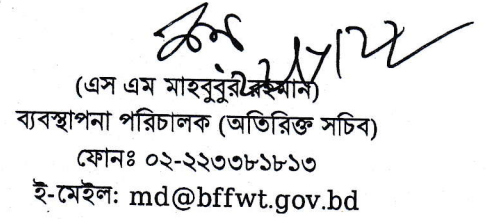 (এস এম মাহবুবুর রহমান)
ব্যবস্থাপনা পরিচালক (অতিরিক্ত সচিব)
ফোনঃ ০২-২২৩৩৮১৮১৩
ই-মেইল: md@bffwt.gov.bd